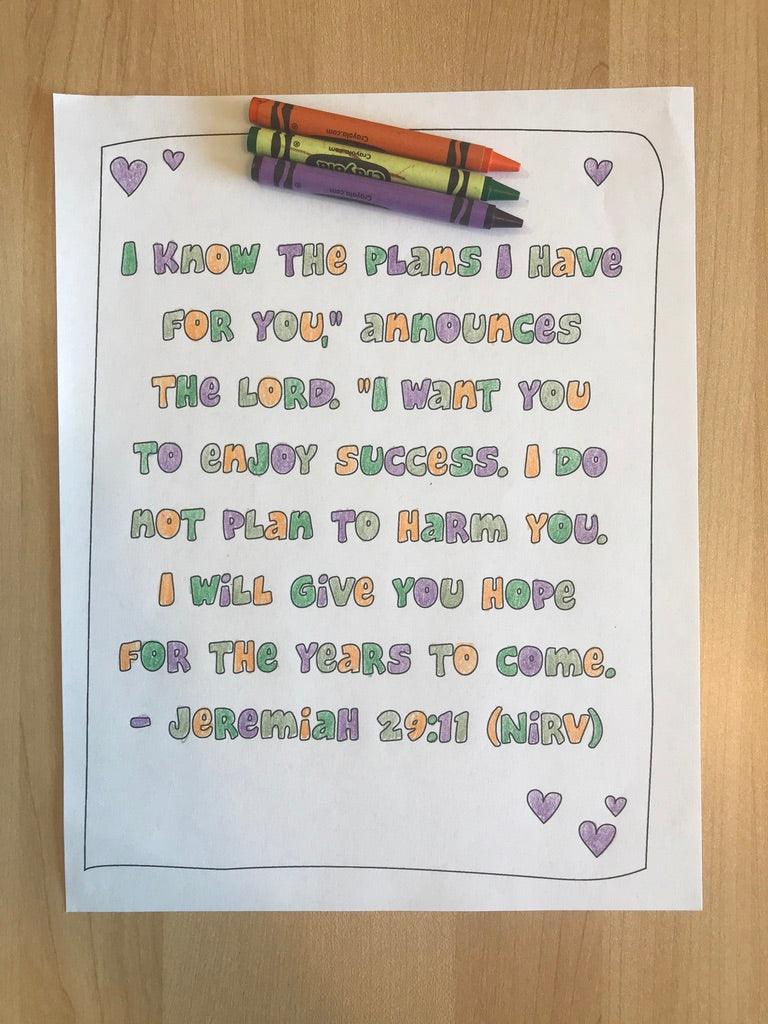 Crayola.com
Crayola.com
Crayola
Crayola.com
I KNOW THE PLANS I HAVE
FOR YOU," ANNOUNCES
THE LORD. "I WANT YOU
TO ENJOY SUCCESS. I DO
NOT PLAN TO HARM YOU.
I WiLL GiVE YOU HOPE
FOR THE YEARS TO COME.
- JEREMiAH 29:11 (NiRV)